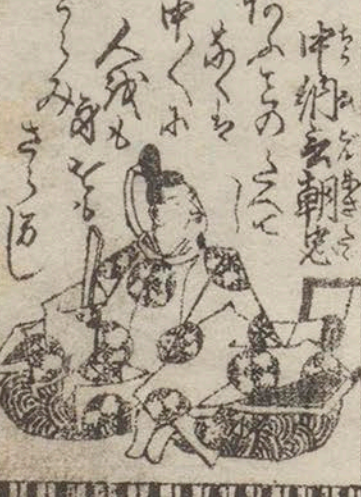 ちうなごんあさたゞ
中納言朝忠
あふことのたへて
し
なくは
中〱に
人をも
身をも
うらみ
さらまし